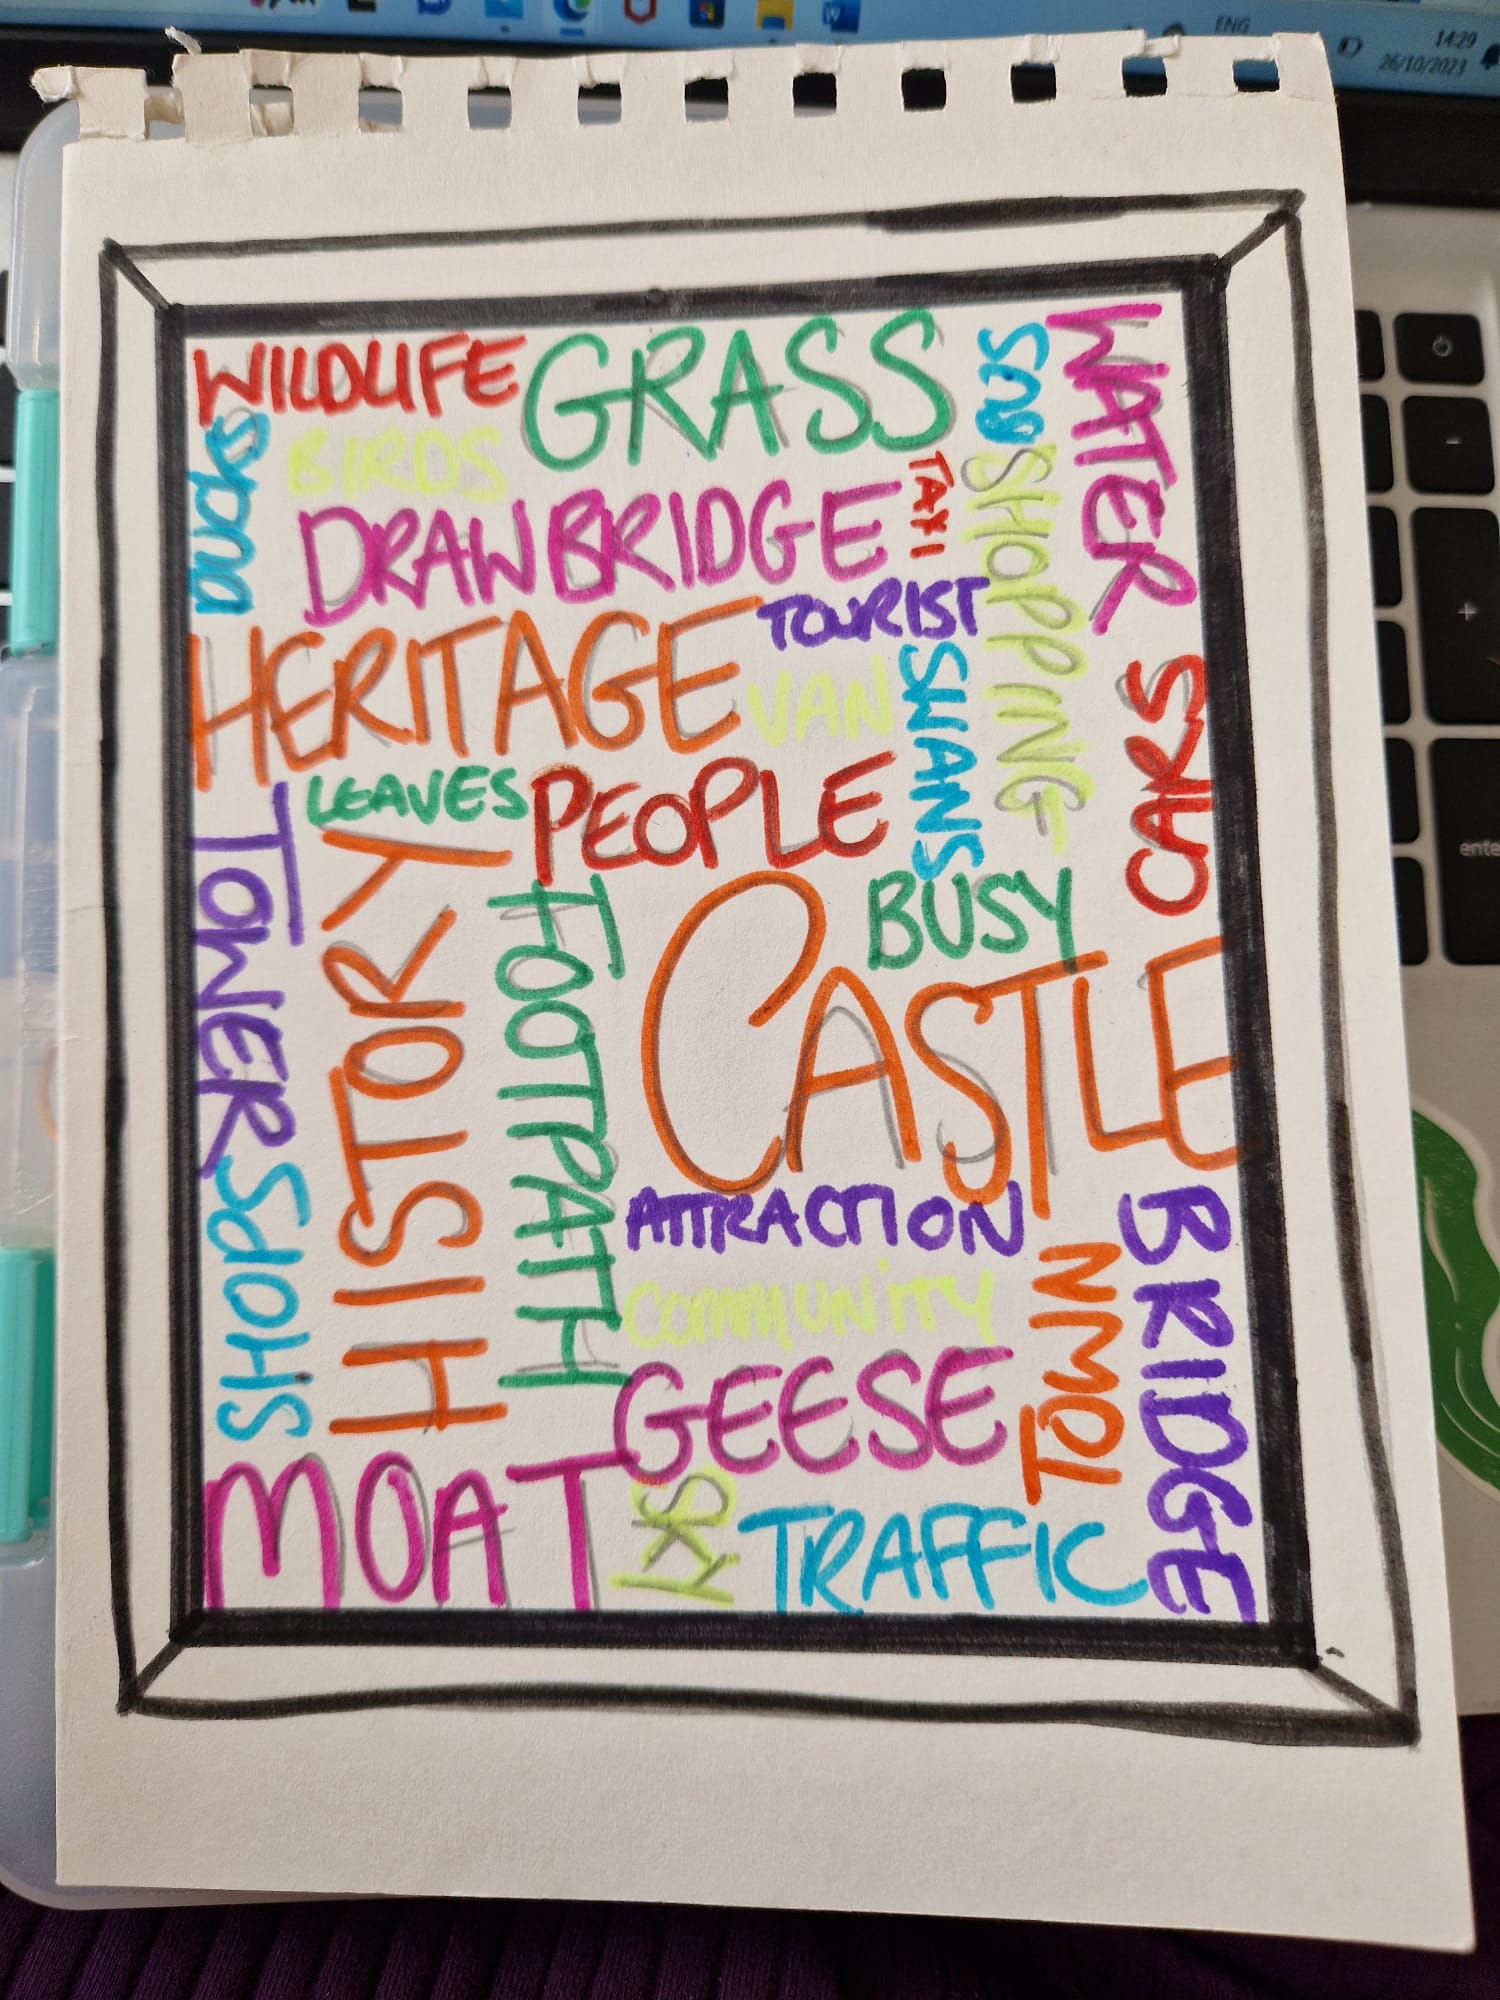 ENG
14:29
26/10/2023
WILDLIFE
GRASS
BUS
WATER
DUCKS
BIRDS
DRAWBRIDGE
TAXI
SHOPPING
HERITAGE
TOURIST
VAN
SWANS
CARS
LEAVES
PEOPLE
TOWER
HISTORY
FOOTPATH
CASTLE
BUSY
SHOPS
ATTRACTION
COMMUNITY
TOWN
BRIDGE
GEESE
MOAT
SKY
TRAFFIC
enter